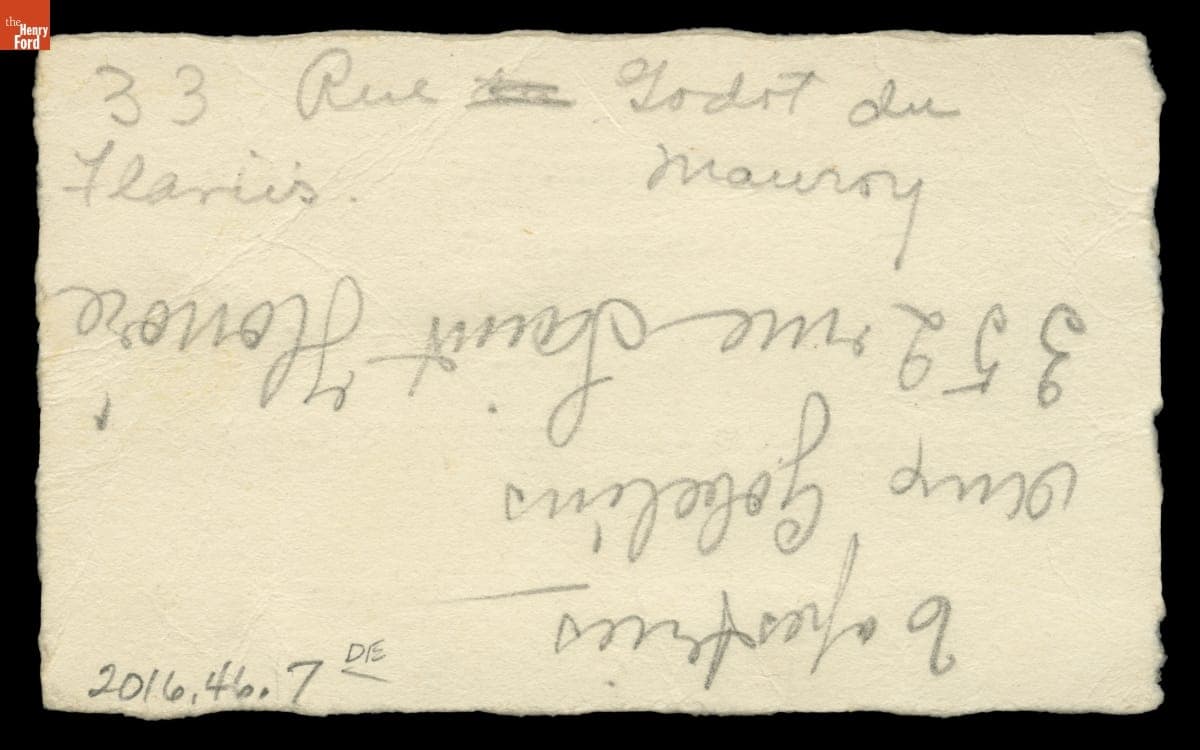 the
Henry
Ford
33 Rue Godot du
Mauroy
Flariis.
Tapestries
aux Gobelins
352 rue Saint Honoré
2016.46.7 DE